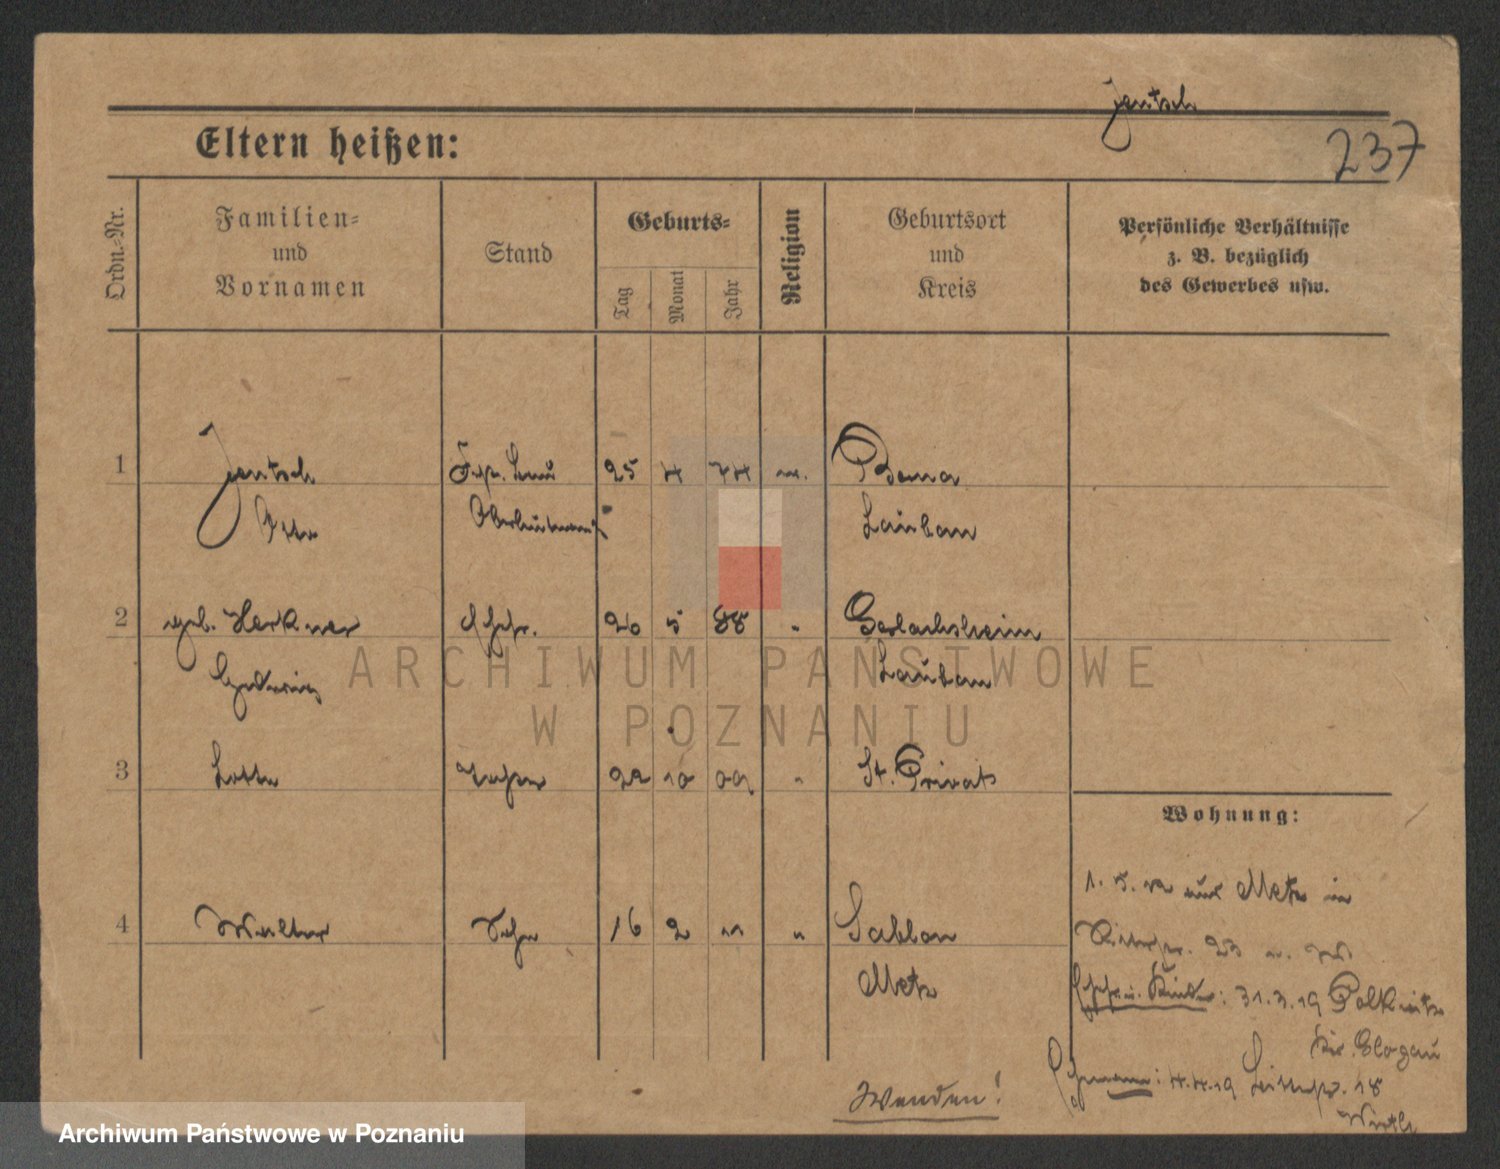 Jentsch
237
Eltern heißen:
Ordn.-Nr.
Familien-
und
Vornamen
Stand
Geburts-
Tag
Monat
Jahr
Religion
Geburtsort
und
Kreis
Persönliche Verhältnisse
z. B. bezüglich
des Gewerbes usw.
1 Jentsch 25 4 74 Bena
Otto Lauban
2 geb. Herkner Ehefr. 20 5 88 " Gerlachsheim
Hedwig Lauban
3 Lotte Tochter 22 10 09 " St. Privat
Wohnung:
1. 5. 12 aus Metz in
4 Walter Sohn 16 2 11 " Sablon
23
Metz
Ehefr. u. Kinder: 31.3.19 Polkwitz
Kr. Glogau
Ehemann: 4.4.19 18
Wenden!
ARCHIWUM PAŃSTWOWE
W POZNANIU
Archiwum Państwowe w Poznaniu